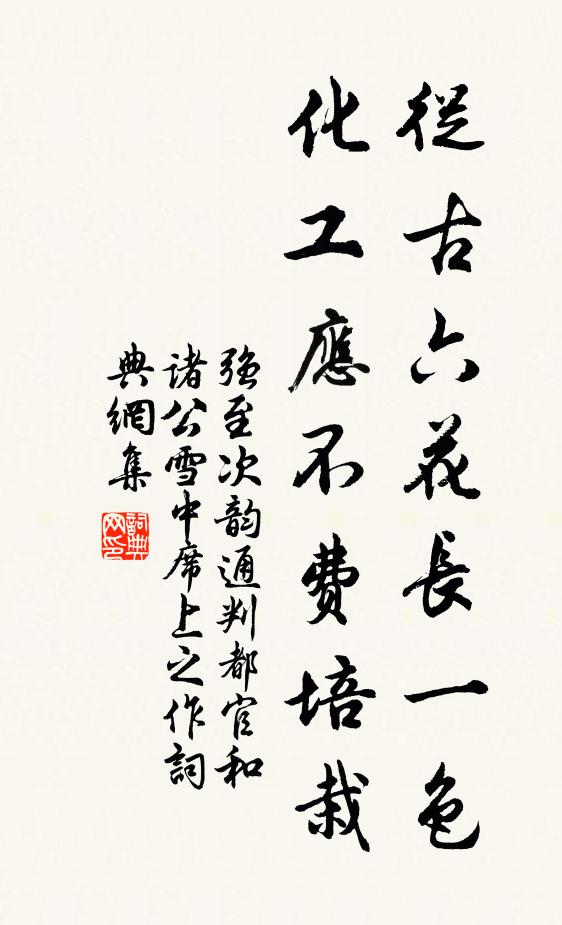 從古六花長一色
化工應不費培栽
強至次韵通判都官和
諸公雪中席上之作詞
典網集
詞典网印